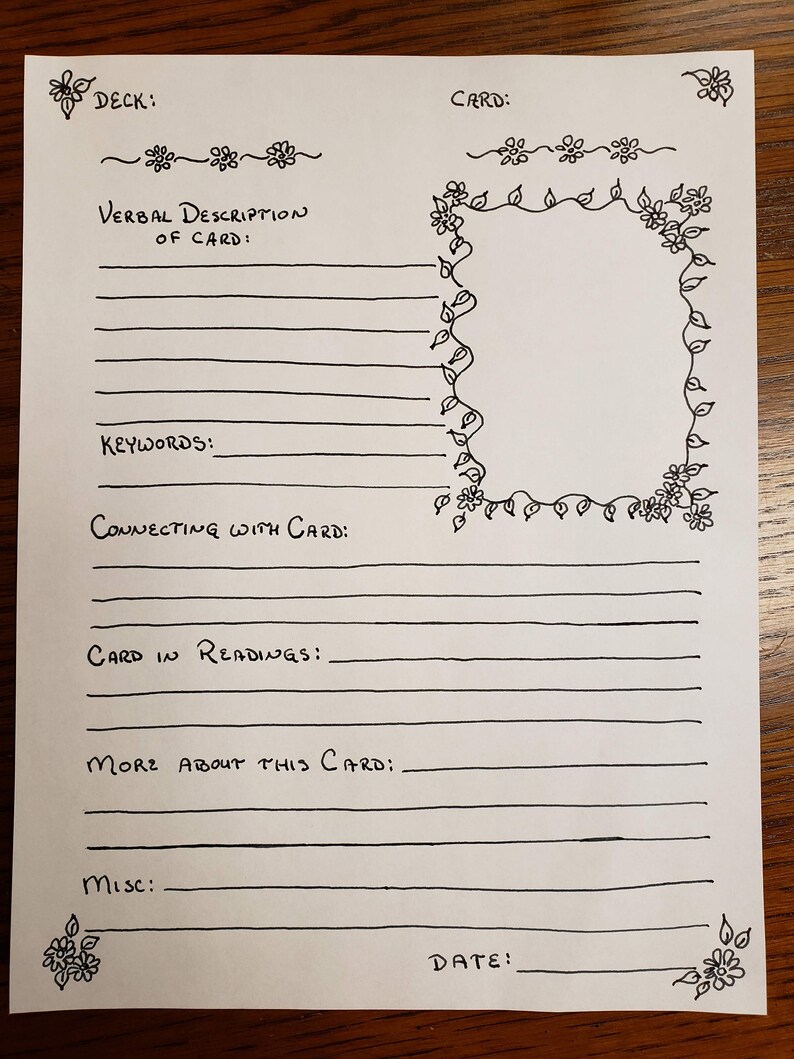 DECK:
CARD:
VERBAL DESCRIPTION
OF CARD:
KEYWORDS:
CONNECTING WITH CARD:
CARD IN READINGS:
MORE ABOUT THIS CARD:
MISC:
DATE: